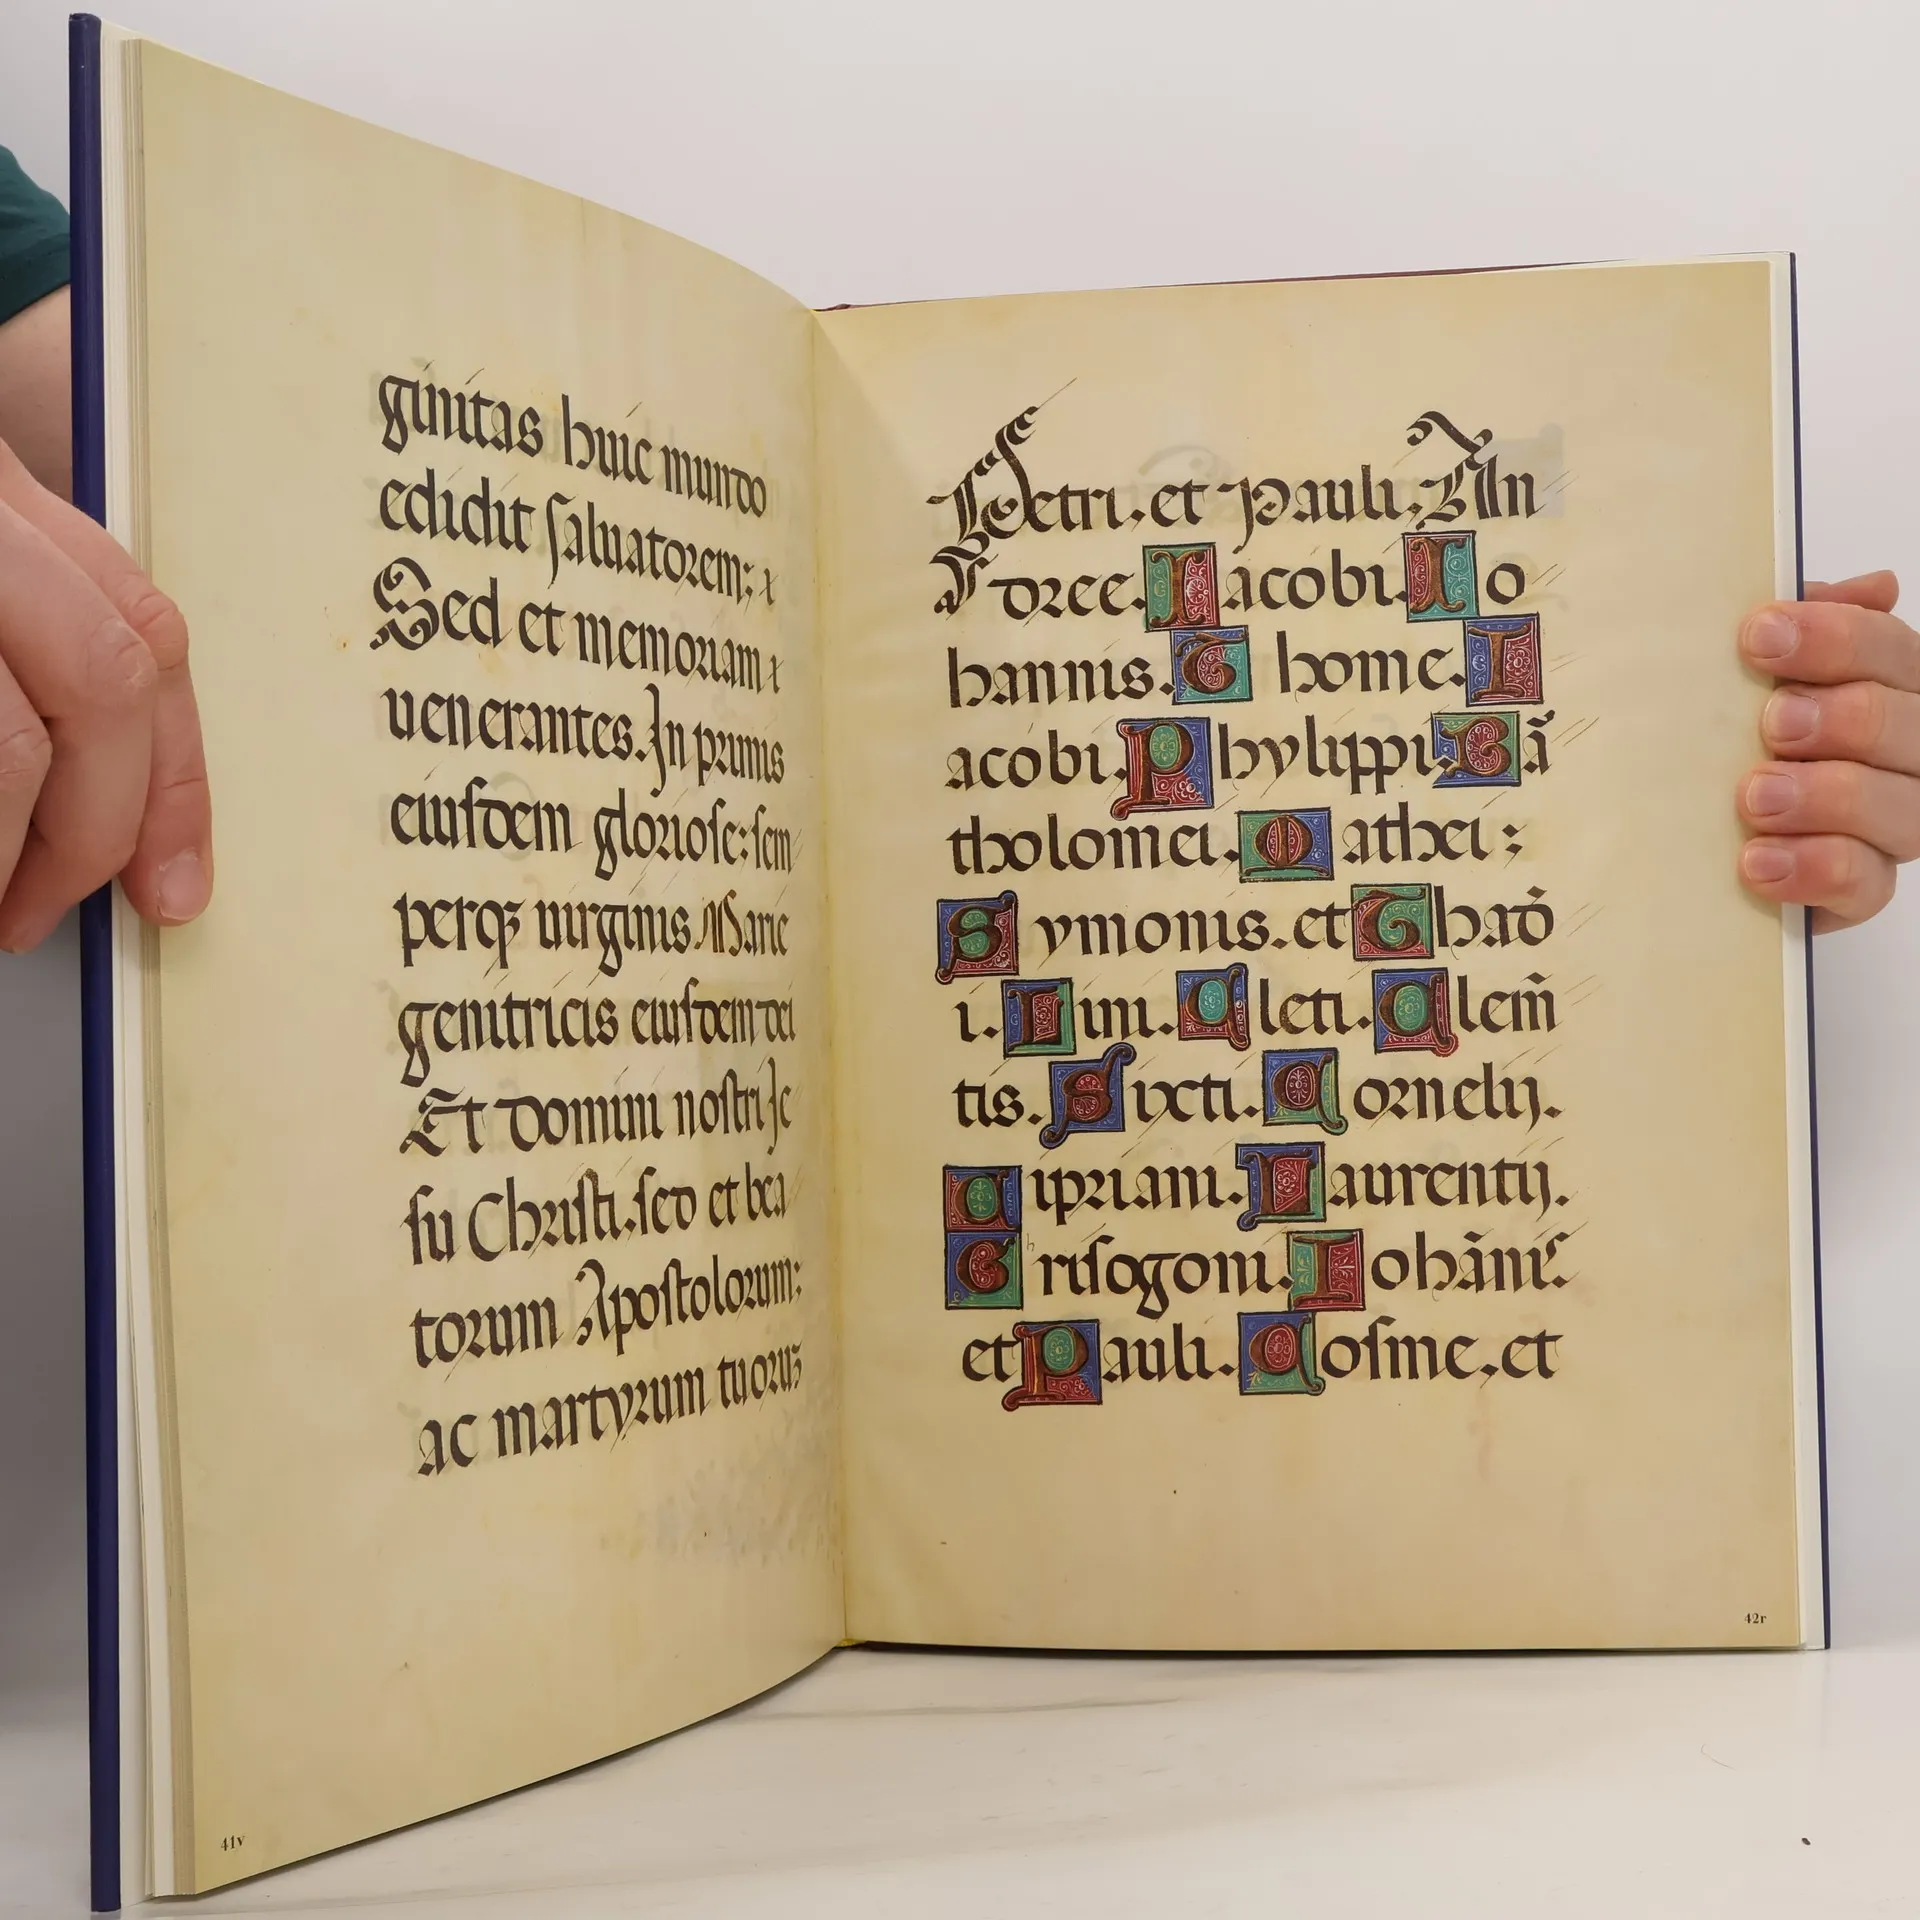 ginitas huic mundo
edidit ſaluatorem:
Sed et memoriam
uenerantes. In primis
eiuſdem glorioſe: ſem
perqꝫ uirginis Marie
genitricis eiuſdem dei
Et domini noſtri Je
ſu Chriſti. ſed et bea
torum Apoſtolorum:
ac martyrum tuoruꝫ
41v
Petri. et Pauli. An
dree. Iacobi. Io
hannis. Thome. I
acobi. Phylippi. Bã
tholomei. Mathei;
Symonis. et Thad
i. Lini. Cleti. Clem̃
tis. Sixti. Cornelij.
Cipriani. Laurentij.
Criſogoni. Iohãnis.
et Pauli. Coſme. et
42r